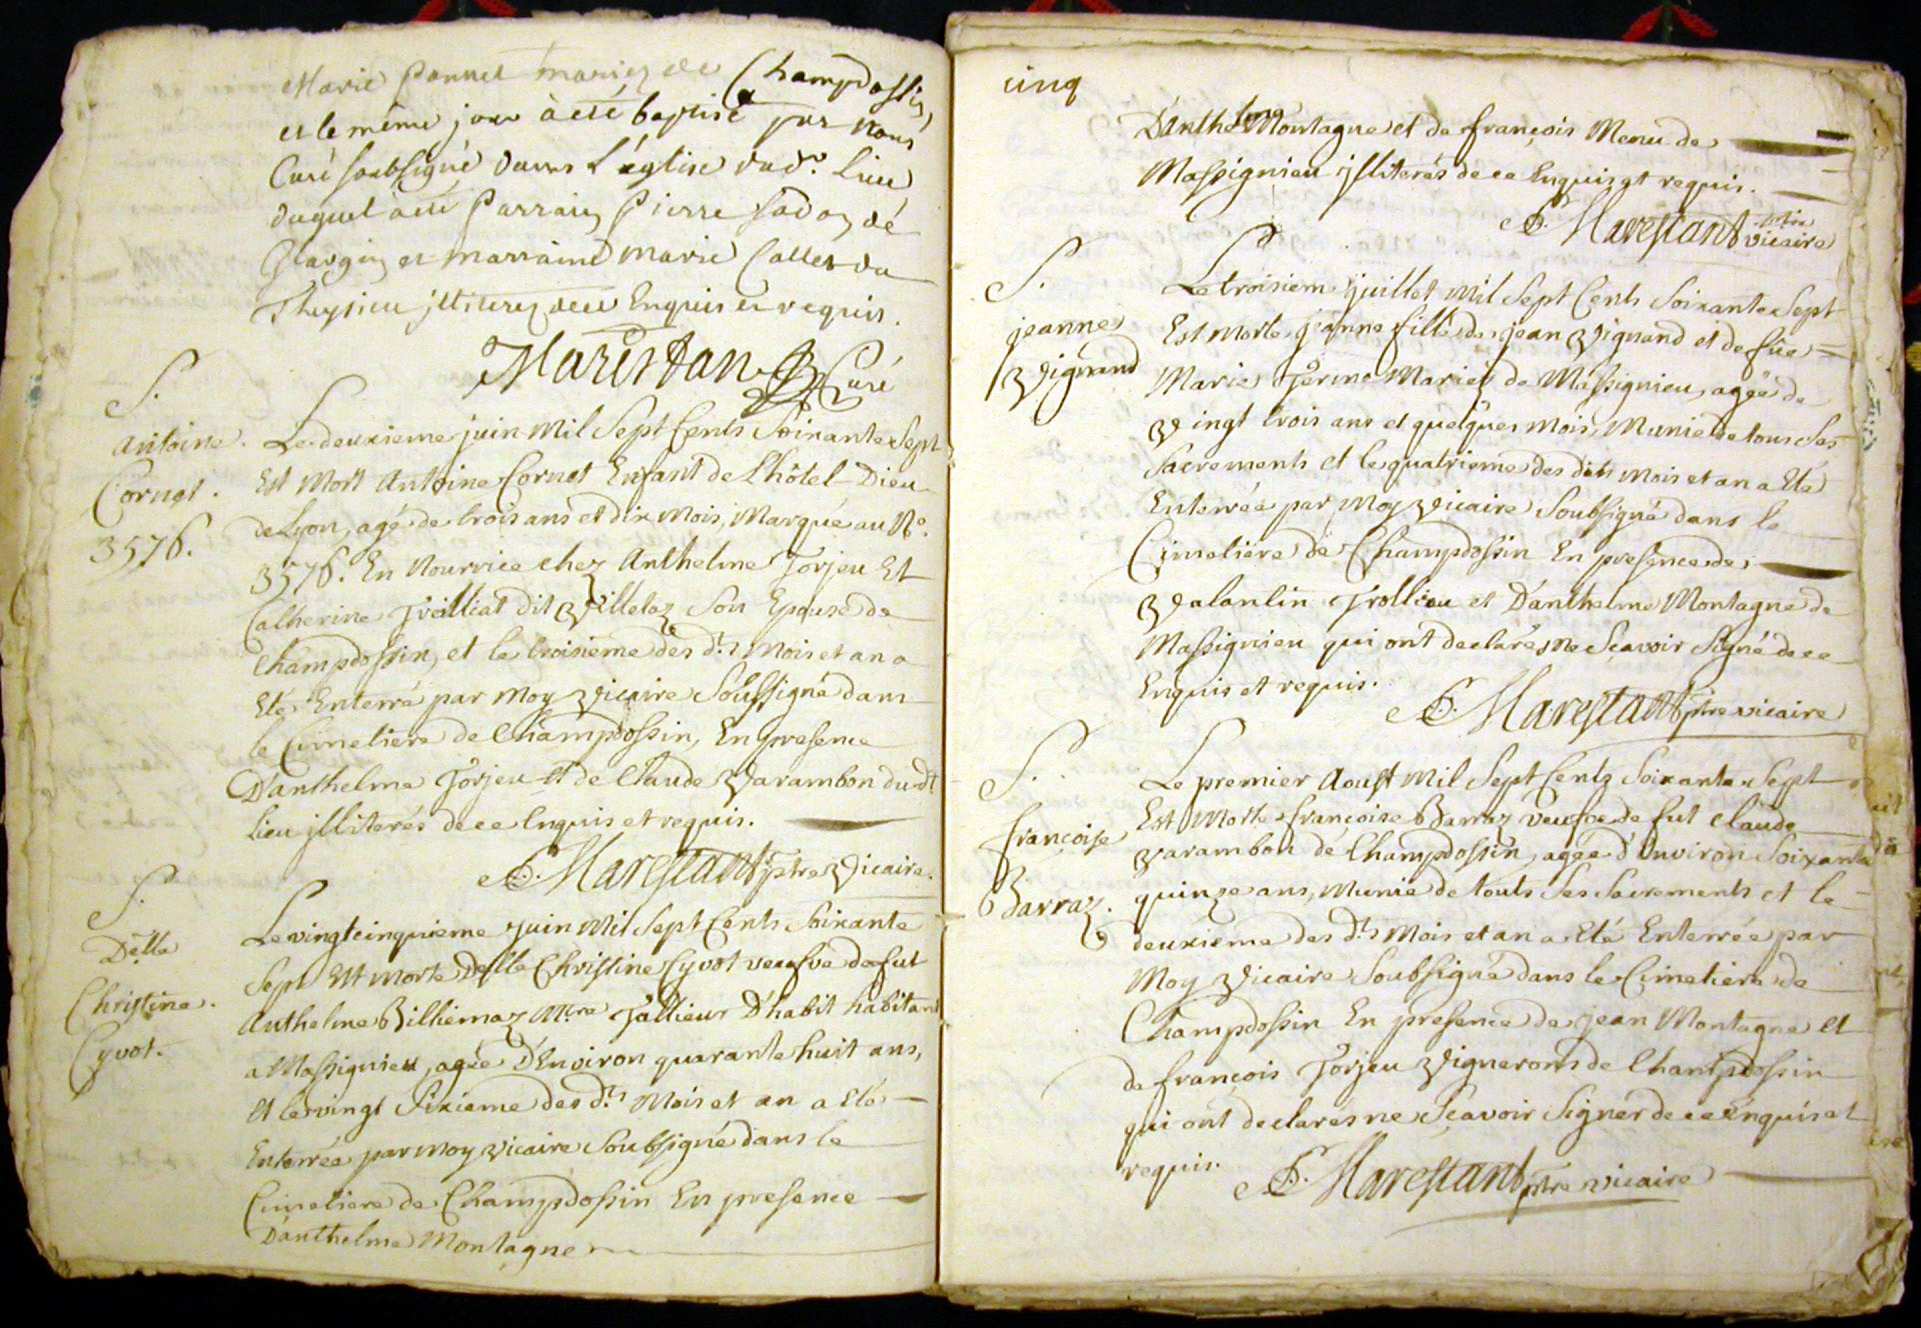 Marie Pannet mariez de Champdossin
et le même jour à été baptisé par nous
Curé soubsigné dans l'église dud.t lieu
duquel à été Parrain Pierre
et marraine marie Callet du
illiterez de ce Enquis et requis.
Marestan Curé
S.
antoine
Cornet.
3576.
Le deuxieme juin Mil Sept Cents Soixante Sept
Est Mort Antoine Cornet Enfant de L'hôtel Dieu
de Lyon, agé de trois ans et dix Mois, Marqué au N.o
3576. En Nourrice chez Anthelme Torjeu Et
Catherine Treilliat dit Villetaz Son Epouse de
Champdossin, et le troisieme des d.ts Mois et an a
Eté Enterré par Moy Vicaire Soussigné dans
le Cimetiere de Champdossin, En presence
D'anthelme Torjeu Et de Claude Varambon dud.t
Lieu illiterés de ce Enquis et requis.
Marestant ptre Vicaire.
S.
Delle
Christine.
Cyvot.
Le vingtcinquieme Juin Mil Sept Cents Soixante
Sept Est Morte Delle Christine Cyvot veufve de fut
Anthelme Billiemaz M.tre Tallieur D'habit habitant
a Massignieu, agée D'Environ quarante huit ans,
Et le vingt Sixieme des d.ts Mois et an a Eté
Enterrée par Moy Vicaire Soubsigné dans le
Cimetiere de Champdossin En presence
D'anthelme Montagne
cinq
D'anthelme Montagne et de françois Menu de
Massignieu illiterés de ce Enquis et requis.
Marestant ptre vicaire
S.
jeanne
Vignand
Le troisiem juillet Mil Sept Cents Soixante Sept
Est Morte jeanne fille de jean Vignand et de fûe
Marie Perine Mariez de Massignieu, agée de
Vingt trois ans et quelques Mois, Munie de tous Ses
Sacrements et le quatrieme des dits Mois et an a Eté
Enterrée par Moy Vicaire Soubsigné dans le
Cimetiere de Champdossin En presence de
Valantin Trollieu et D'anthelme Montagne de
Massignieu qui ont declarés Ne Sçavoir Signé de ce
Enquis et requis.
Marestant ptre vicaire
S.
françoise
Barraz.
Le premier Aoust Mil Sept Cents Soixante Sept
Est Morte françoise Barraz veufve de fut Claude
Varambon de Champdossin, agée d'Environ Soixante
quinze ans, Munie de touts Ses Sacrements et le
deuxieme des d.ts Mois et an a Eté Enterrée par
Moy Vicaire Soubsigné dans le Cimetiere de
Champdossin En presence de jean Montagne Et
de françois Torjeu Vignerons de Champdossin
qui ont declarés ne Sçavoir Signer de ce Enquis et
requis.
Marestant ptre vicaire